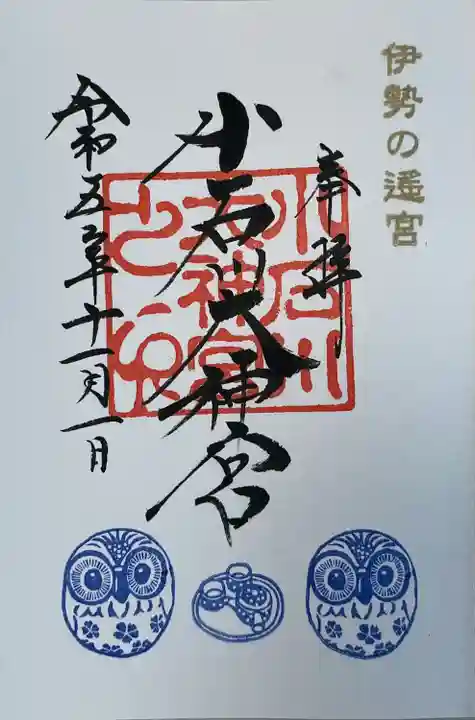 伊勢の遥宮
奉拝
小石川大神宮
小石川
大神宮
之印
令和五年十一月一日